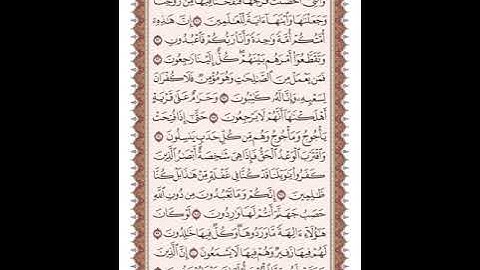 وَٱلَّتِىٓ أَحْصَنَتْ فَرْجَهَا فَنَفَخْنَا فِيهَا مِن رُّوحِنَا
وَجَعَلْنَٰهَا وَٱبْنَهَآ ءَايَةً لِّلْعَٰلَمِينَ ۝ إِنَّ هَٰذِهِۦٓ
أُمَّتُكُمْ أُمَّةً وَٰحِدَةً وَأَنَا۠ رَبُّكُمْ فَٱعْبُدُونِ ۝
وَتَقَطَّعُوٓا۟ أَمْرَهُم بَيْنَهُمْ ۖ كُلٌّ إِلَيْنَا رَٰجِعُونَ ۝
فَمَن يَعْمَلْ مِنَ ٱلصَّٰلِحَٰتِ وَهُوَ مُؤْمِنٌ فَلَا كُفْرَانَ
لِسَعْيِهِۦ وَإِنَّا لَهُۥ كَٰتِبُونَ ۝ وَحَرَٰمٌ عَلَىٰ قَرْيَةٍ
أَهْلَكْنَٰهَآ أَنَّهُمْ لَا يَرْجِعُونَ ۝ حَتَّىٰٓ إِذَا فُتِحَتْ
يَأْجُوجُ وَمَأْجُوجُ وَهُم مِّن كُلِّ حَدَبٍ يَنسِلُونَ ۝
وَٱقْتَرَبَ ٱلْوَعْدُ ٱلْحَقُّ فَإِذَا هِىَ شَٰخِصَةٌ أَبْصَٰرُ ٱلَّذِينَ
كَفَرُوا۟ يَٰوَيْلَنَا قَدْ كُنَّا فِى غَفْلَةٍ مِّنْ هَٰذَا بَلْ كُنَّا
ظَٰلِمِينَ ۝ إِنَّكُمْ وَمَا تَعْبُدُونَ مِن دُونِ ٱللَّهِ
حَصَبُ جَهَنَّمَ أَنتُمْ لَهَا وَٰرِدُونَ ۝ لَوْ كَانَ
هَٰٓؤُلَآءِ ءَالِهَةً مَّا وَرَدُوهَا ۖ وَكُلٌّ فِيهَا خَٰلِدُونَ ۝
لَهُمْ فِيهَا زَفِيرٌ وَهُمْ فِيهَا لَا يَسْمَعُونَ ۝ إِنَّ ٱلَّذِينَ